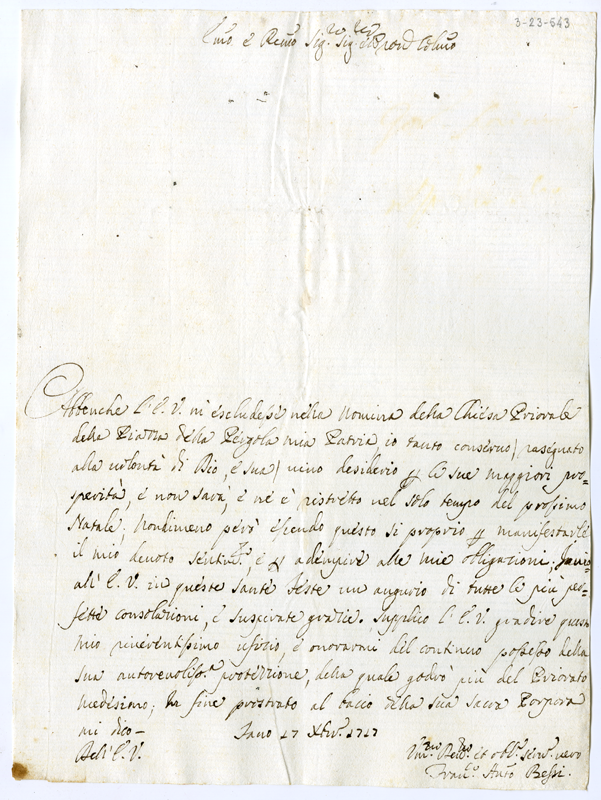 3-23-643
Emo e Revmo Sig.re Sig.re e Pron Colmo
Abbenche l'E. V. m'escludesse nella Nomina della Chiesa Priorale
delle della Pergola mia Patria, io tanto conservo rasegnato
alla volontà di Dio, e sua vivo desiderio le sue maggiori pro=
sperità, e non sarà, e nè è ristretto nel solo tempo del prossimo
Natale; Nondimeno però essendo questo si proprio p manifestarle
il mio devoto sentim.to, e p adempire alle mie obligazioni,
all'E. V. in queste Sante Feste un augurio di tutte le più per=
fette consolazioni, e suspirate grazie. Supplico l'E. V. gradire questo
mio riverentissimo ufficio, e onorarmi del continuo possesso della
sua autorevoliss.a protezzione, della quale godrò più del Priorato
medesimo; In fine prostrato al bacio della sua Sacra Porpora
mi dico –
Dell'E. V. Fano 17 Xbre 1717
Um.mo Dev.mo et obl.mo serv.re vero
Fran.co Anto Bessi.